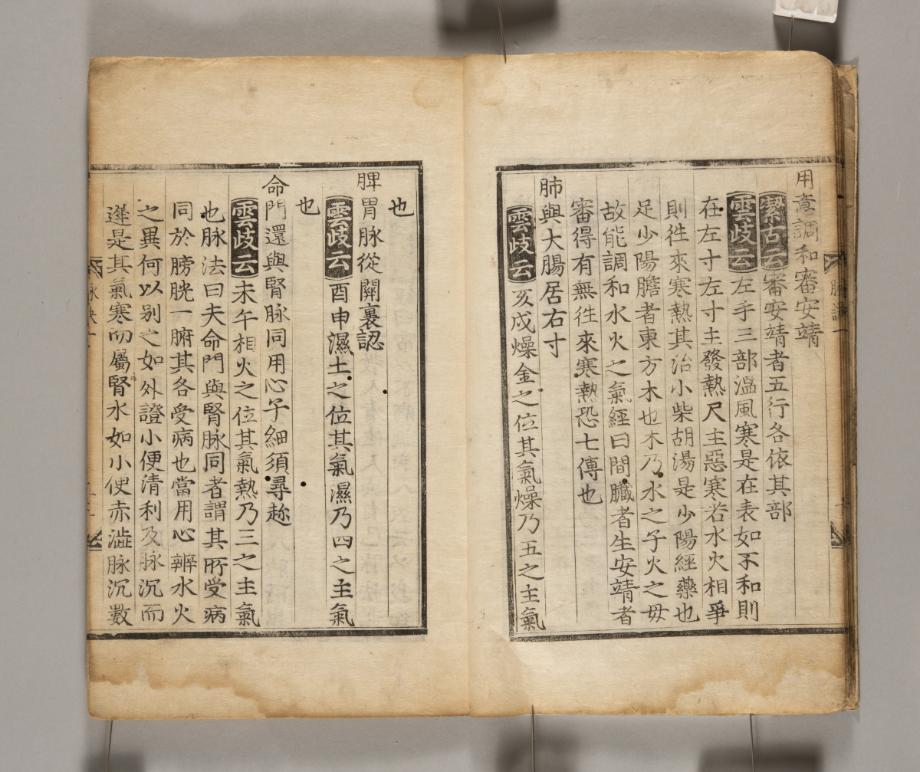 用意調和審安靖
潔古云審安靖者五行各依其部
雲岐云左手三部溫風寒是在表如不和則
在左寸左寸主發熱尺主惡寒若水火相爭
則徃來寒熱其治小柴胡湯是少陽經藥也
足少陽膽者東方木也木乃水之子火之母
故能調和水火之氣經曰間臟者生安靖者
審得有無徃來寒熱恐七傳也
肺與大腸居右寸
雲岐云亥戌燥金之位其氣燥乃五之主氣
也
脾胃脉從關裏認
雲岐云酉申濕土之位其氣濕乃四之主氣
也
命門還與腎脉同用心子細須尋趂
雲岐云未午相火之位其氣熱乃三之主氣
也脉法曰夫命門與腎脉同者謂其所受病
同於膀胱一腑其各受病也當用心辨水火
之異何以别之如外證小便清利及脉沉而
遲是其氣寒而屬腎水如小便赤澁脉沉數